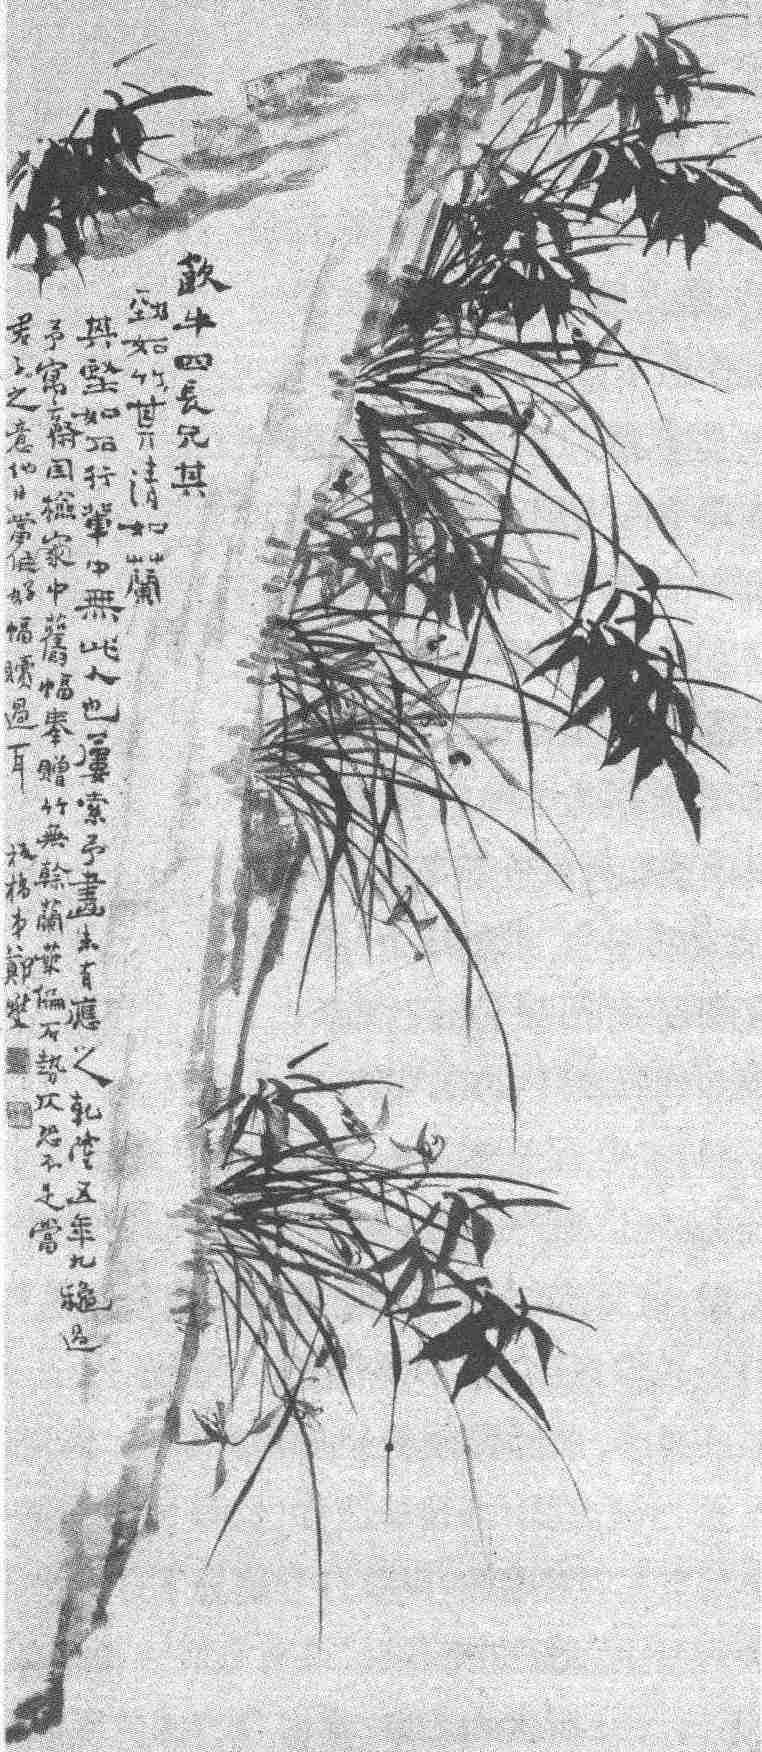 歊牛四長兄其
勁如竹其清如蘭
其堅如石行輩中無此人也屢索予畫未有應之乾隆五年九穐過
予寓齋因檢家中舊幅奉贈竹無幹蘭葉偏石勢仄恐不足當
君子之意他日當作好幅贖過耳 板橋弟鄭燮